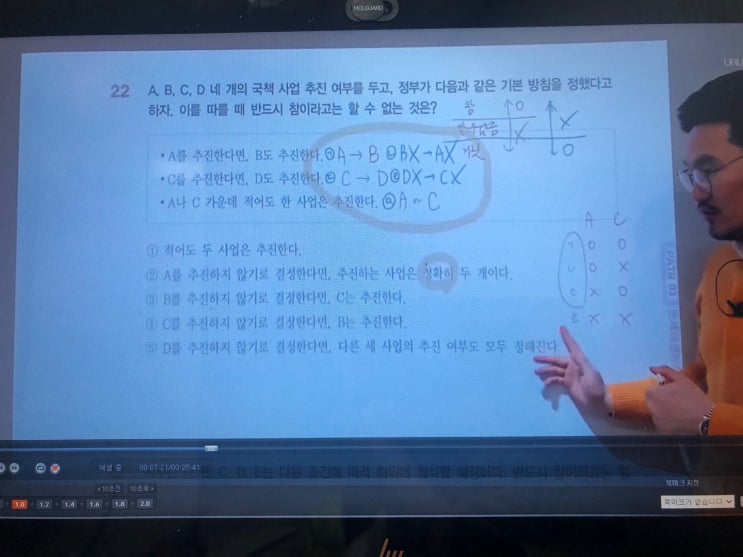 MOLGUARD
22 A, B, C, D 네 개의 국책 사업 추진 여부를 두고, 정부가 다음과 같은 기본 방침을 정했다고
하자. 이를 따를 때 반드시 참이라고는 할 수 없는 것은?
참 O X
X O
• A를 추진한다면, B도 추진한다. ㉠ A → B ㉡ BX → AX
• C를 추진한다면, D도 추진한다. ㉢ C → D ㉣ DX → CX
• A나 C 가운데 적어도 한 사업은 추진한다. ㉤ A ~ C
A C
① 적어도 두 사업은 추진한다.
ㄱ O O
② A를 추진하지 않기로 결정한다면, 추진하는 사업은 정확히 두 개이다.
ㄴ O X
③ B를 추진하지 않기로 결정한다면, C는 추진한다.
ㄷ X O
④ C를 추진하지 않기로 결정한다면, B는 추진한다.
ㄹ X X
⑤ D를 추진하지 않기로 결정한다면, 다른 세 사업의 추진 여부도 모두 정해진다
PATH 03
재생 중 00:07:21/00:25:41
C, D, E는 다음 조건에 따라 회의에 참석할 예정이다. 반드시 참이라고는 할
<10초전 10초후>
북마크 지점
1.0 1.2 1.4 1.6 1.8 2.0
북마크가 없습니다